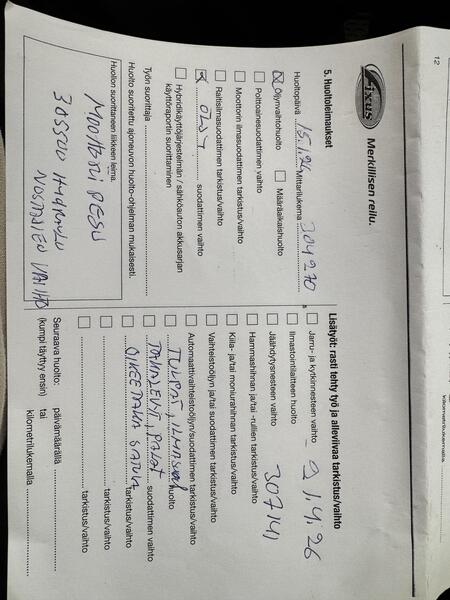 12
Fixus
Merkillisen reilu.
5. Huoltoleimaukset
Huoltopäivä 15.1.26 Mittarilukema 304970
Öljynvaihtohuolto
Määräaikaishuolto
Polttoainesuodattimen vaihto
Moottorin ilmasuodattimen vaihto
Raitisilmasuodattimen tarkistus/vaihto
ÖLJY suodattimen vaihto
Hybridikäyttöjärjestelmän / sähköauton akkusarjan
käyttöraportin suorittaminen
Työn suorittaja
Huolto suoritettu ajoneuvon huolto-ohjelman mukaisesti.
Huollon suorittaneen liikkeen leima.
MOOTTORI PESU
NOSTAJIEN VAIHTO
Lisätyöt: rasti tehty työ ja alleviivaa tarkistus/vaihto
Jarru- ja kytkinnesteen vaihto - 21.4.26
Ilmastointilaitteen huolto
Jäähdytysnesteen vaihto 307141
Hammashihnan ja/tai -rullien tarkistus/vaihto
Kiila- ja/tai moniurahihnan tarkistus/vaihto
Vaihteistoöljyn ja/tai suodattimen tarkistus/vaihto
Automaattivaihteistoöljyn/suodattimen tarkistus/vaihto
TULPAT, huolto
suodattimen vaihto
OIKEE TAKA tarkistus/vaihto
tarkistus/vaihto
tarkistus/vaihto
Seuraava huolto: päivämäärällä
(kumpi täyttyy ensin) tai
kilometrilukemalla
kilometrilukemalla